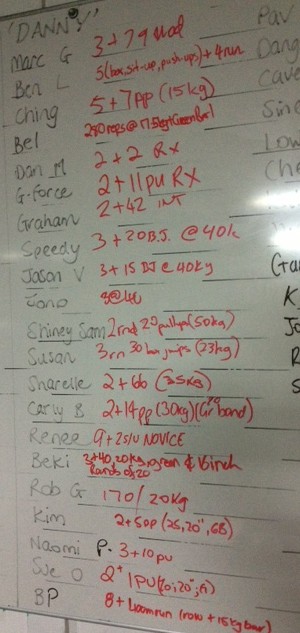 'DANNY'
Marc G 3+79 mod
Ben L 5(box, sit-up, push-ups)+4run
Ching 5+7pp (15kg)
Bel 280reps@17.5kg+Green Bar
Dan M 2+2 RX
G-Force 2+11pu RX
Graham 2+42 INT
Speedy 3+20B.J. @40k
Jason V 3+15 BJ @40kg
Jono
Shiney Sam 2rnd 20 pullps(50kg)
Susan 3rn 30 box jumps (23kg)
Sharelle 2+66 (35KG)
Carly B 2+14pp(30kg)(Gr band)
Renee 9+25/U NOVICE
Beki 3+40, 20kg, green & 16inch
Rands of 20
Rob G 170/20kg
Kim 2+50P (25, 20", GB)
Naomi P. 3+10pu
Sue O 2+1pu
BP 8+400m run (row + 15kg bar)
Pav
Dang
Cave
Low
K
R
S